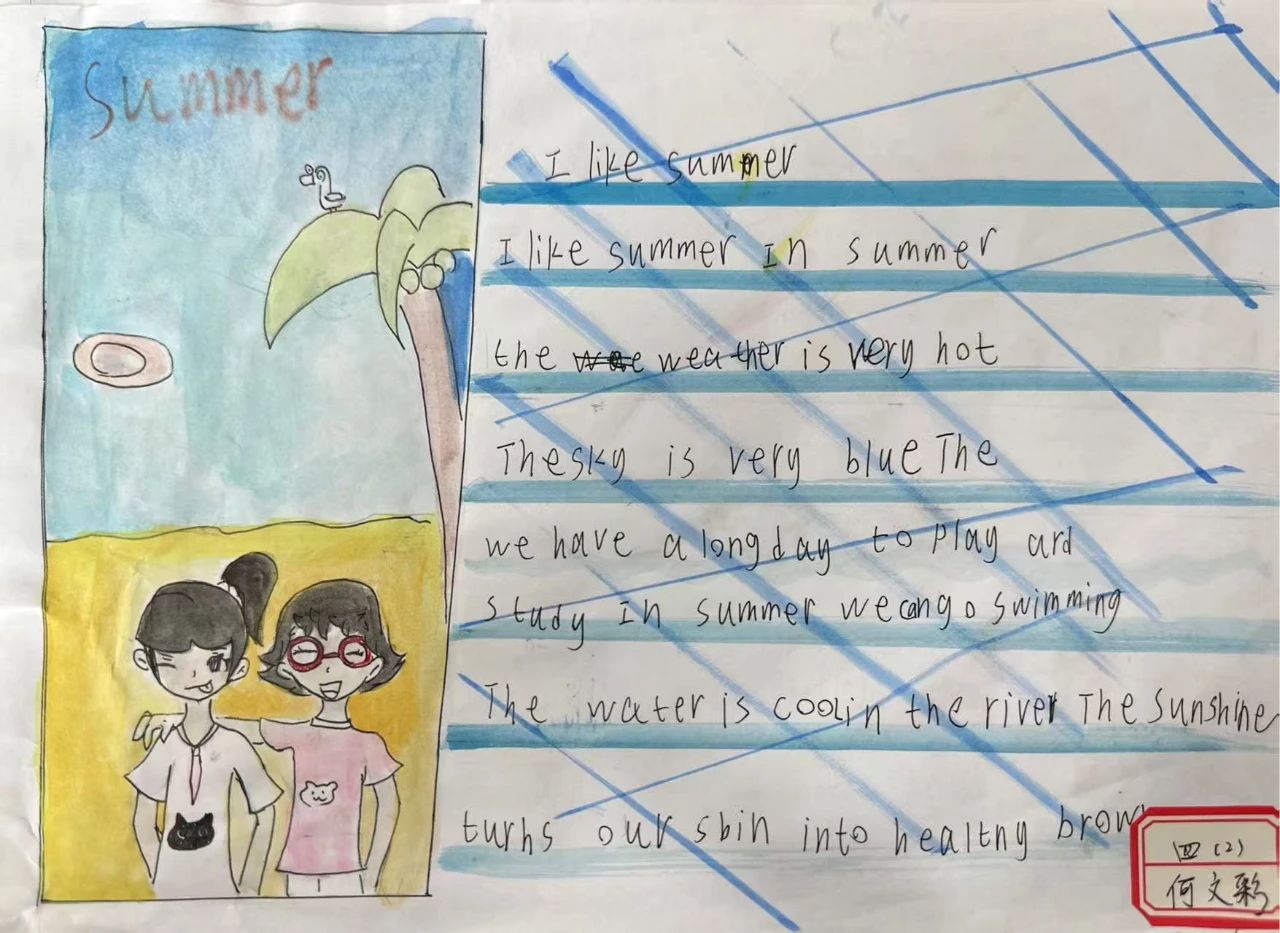 Summer
I like summer
I like summer In summer
the weather is very hot
The sky is very blue The
we have a long day to play ard
study In summer we can go swimming
The water is cool in the river The sunshine
turhs our sbin into healtny brow
四(2)
何文彩